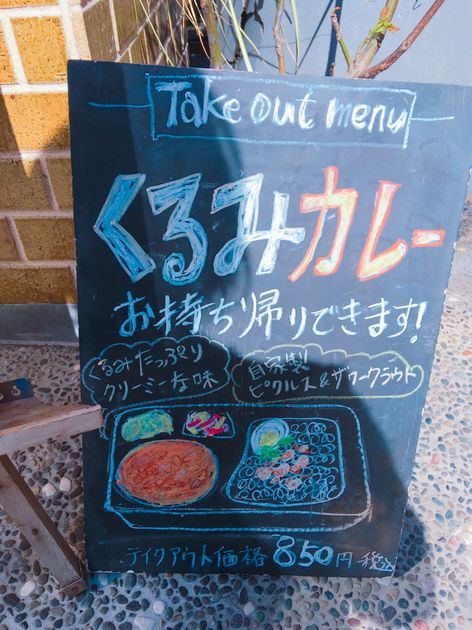 Take out menu
くるみカレー
お持ち帰りできます!
くるみたっぷり
クリーミーな味
自家製
ピクルス&ザワークラウト
テイクアウト価格 850円 税込